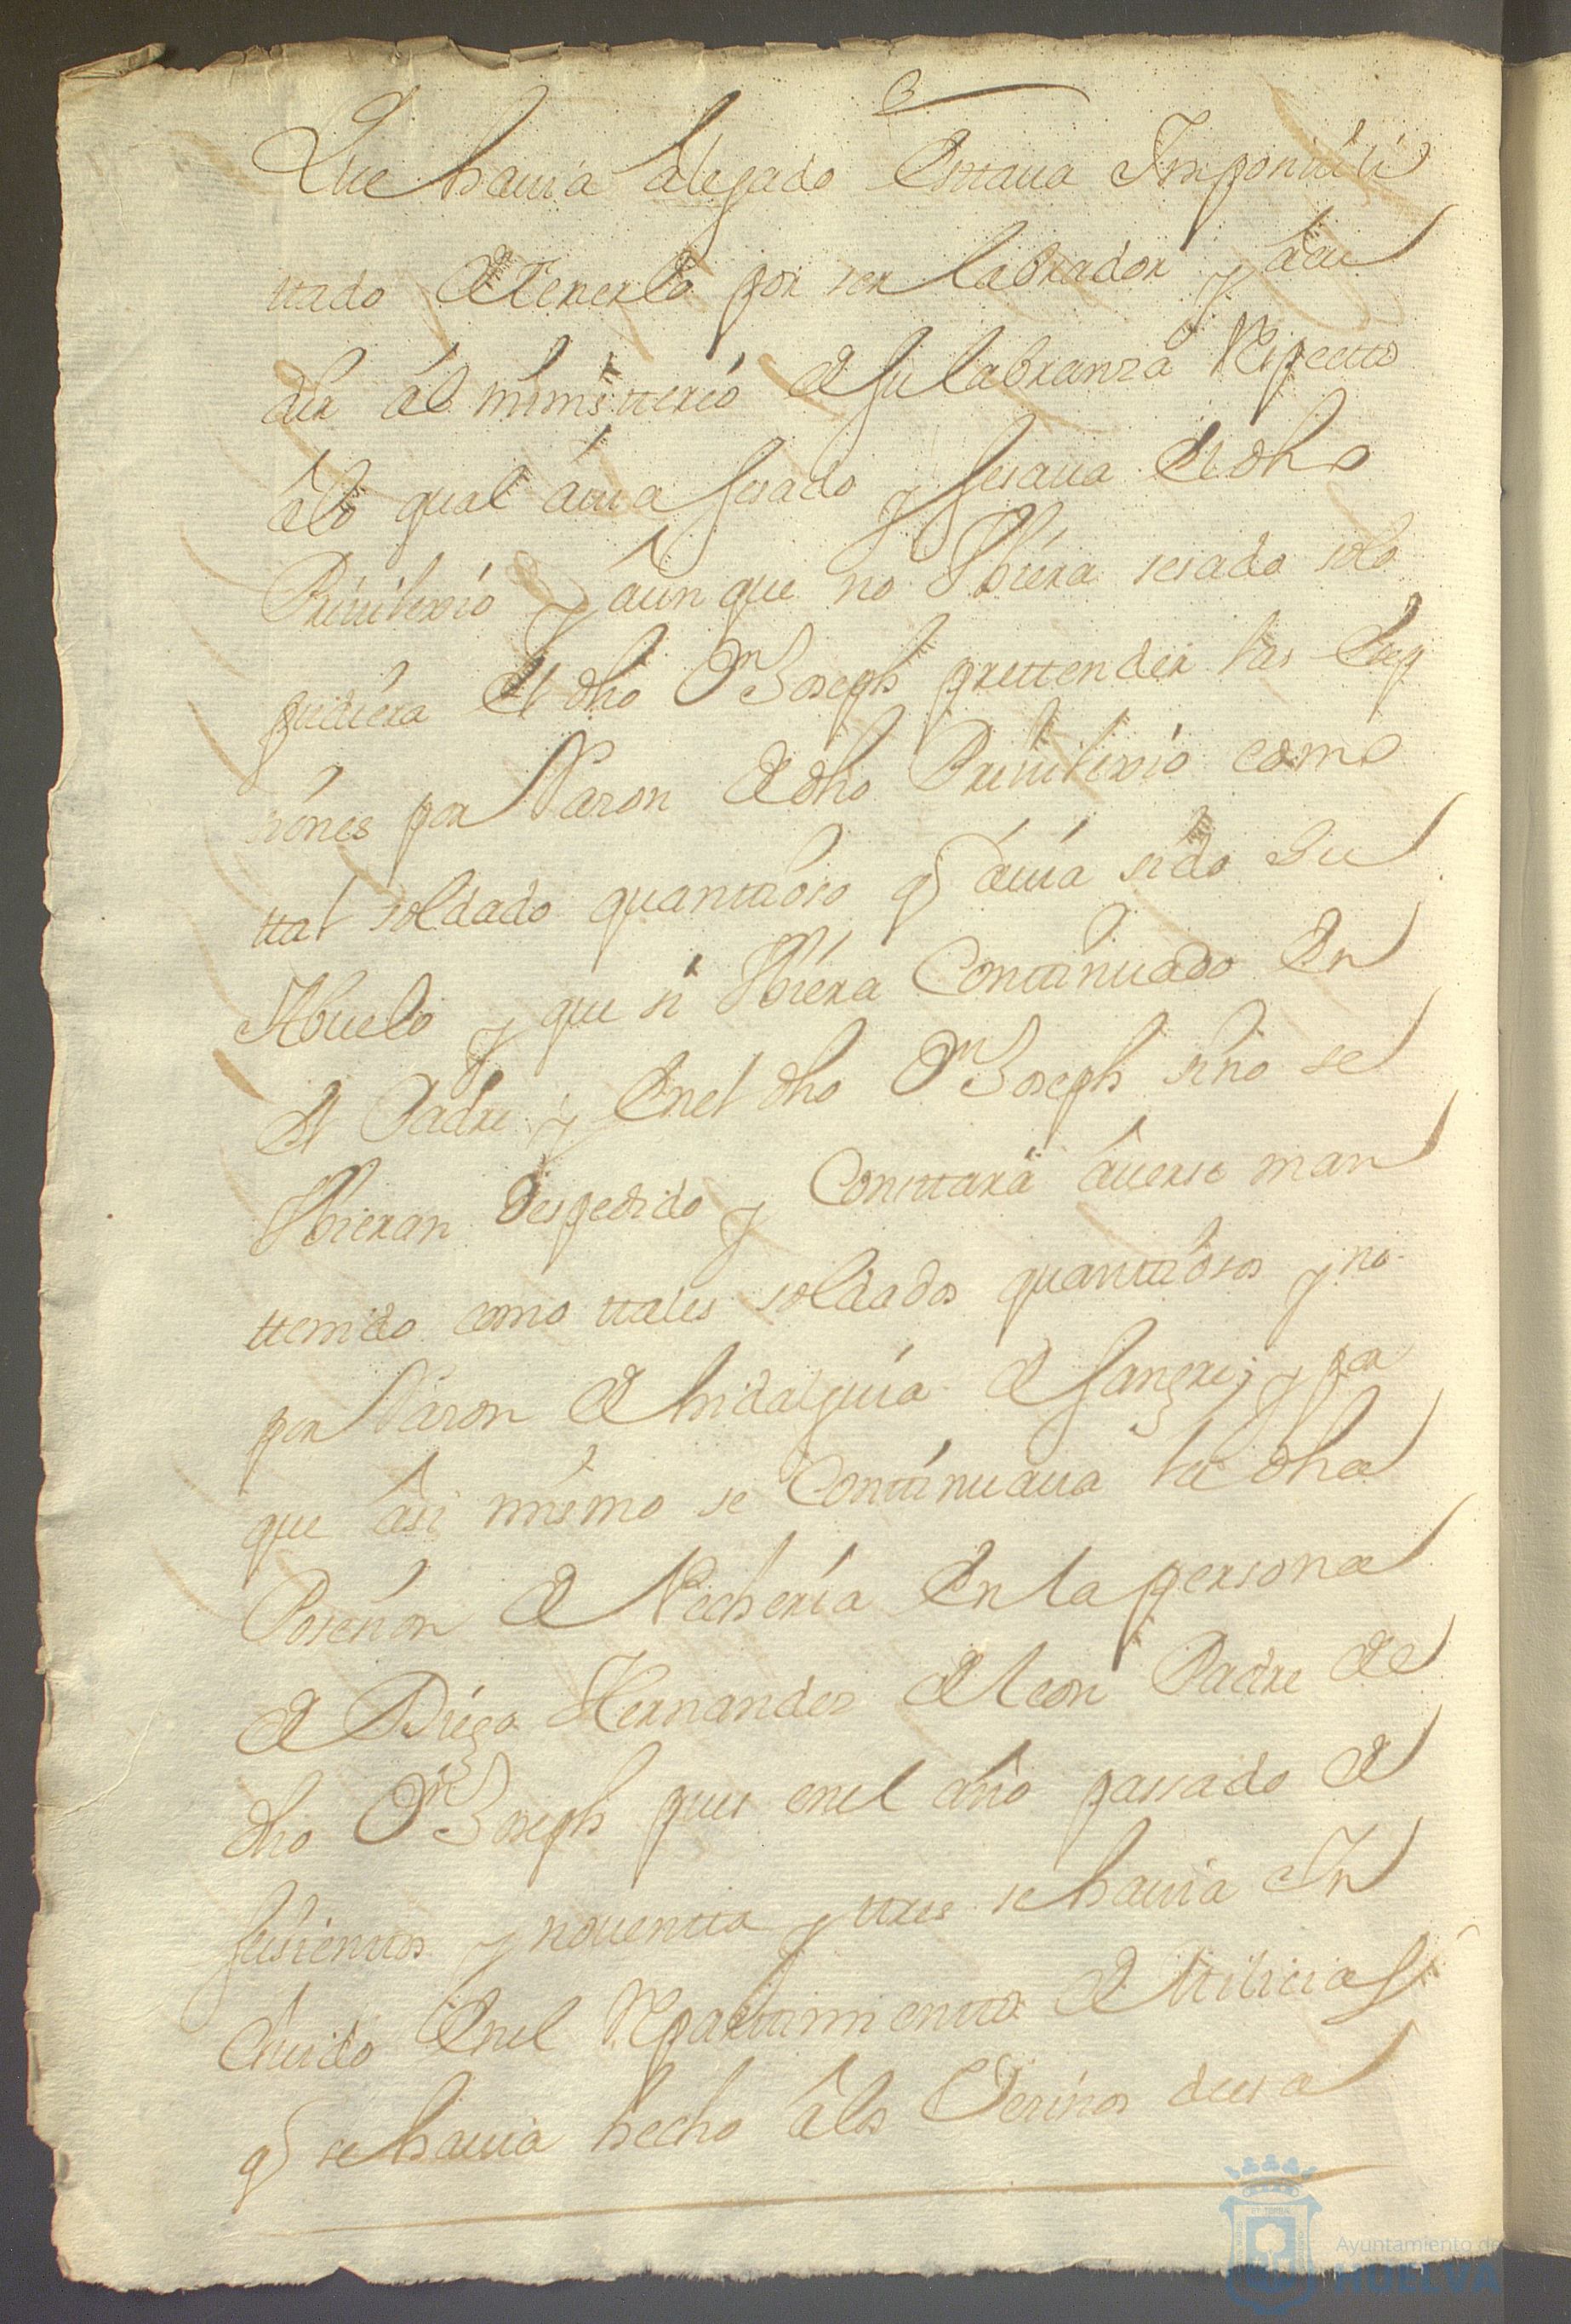 Que hauia alegado Esttaua Imposiuili
ttado de tenerlo por ser labrador y acu
dir al minister​io de su labranza Respectto
a lo qual auia sesado y sesaua el dho
Priuilexio y aunque no Vbiera sesado solo
pudiera el dho Dn Joseph prettender las Exep
siones por Razon de dho Priuilexio como
ttal soldado quantioso q auia sido su
Abuelo y que si Vbiera Conttinuado En
el Padre y En el dho Dn Joseph sino se
Vbieran despedido y Consttara auerse man
ttenido como ttales soldados quantiosos y no
por Razon de hidalguia de sangre; y por
que asi mismo se Conttinuaua la dha
Posesion de Pecheria En la persona
de Diego Hernandez de leon Padre de
dho Dn Joseph pues en el año passado de
seisienttos y nouentta y ttres se hauia In
cluido En el Repartimientto de Milicias
q se hauia hecho a los Vezinos desa
Ayuntamiento de
HUELVA